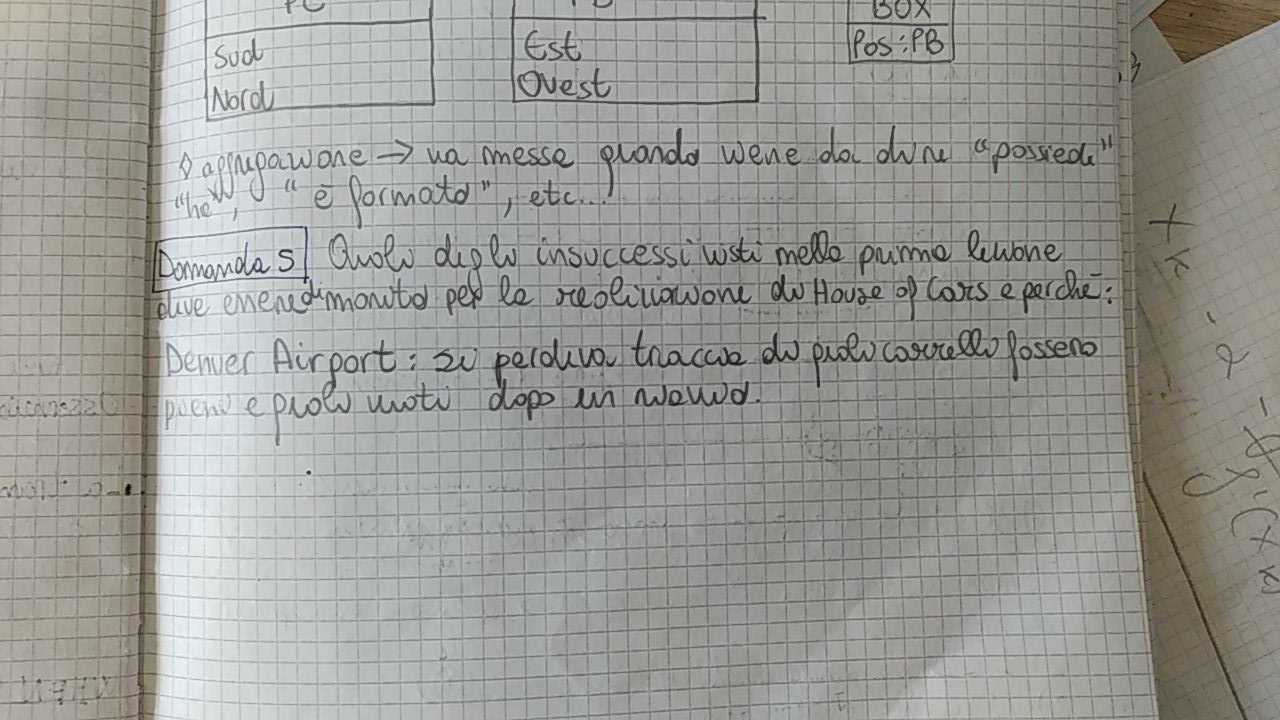 PC
BOX
Sud
Est
Pos:PB
Nord
Ovest
◊ aggregazione → va messa quando viene da dire "possiede"
"ha", "è formato", etc...
Domanda 5 Quale degli insuccessi visti nella prima lezione
deve essere rimandato per la realizzazione di House of Cars e perché:
Denver Airport: si perdeva traccia di quali carrelli fossero
pieni e quali vuoti dopo un riavvio.